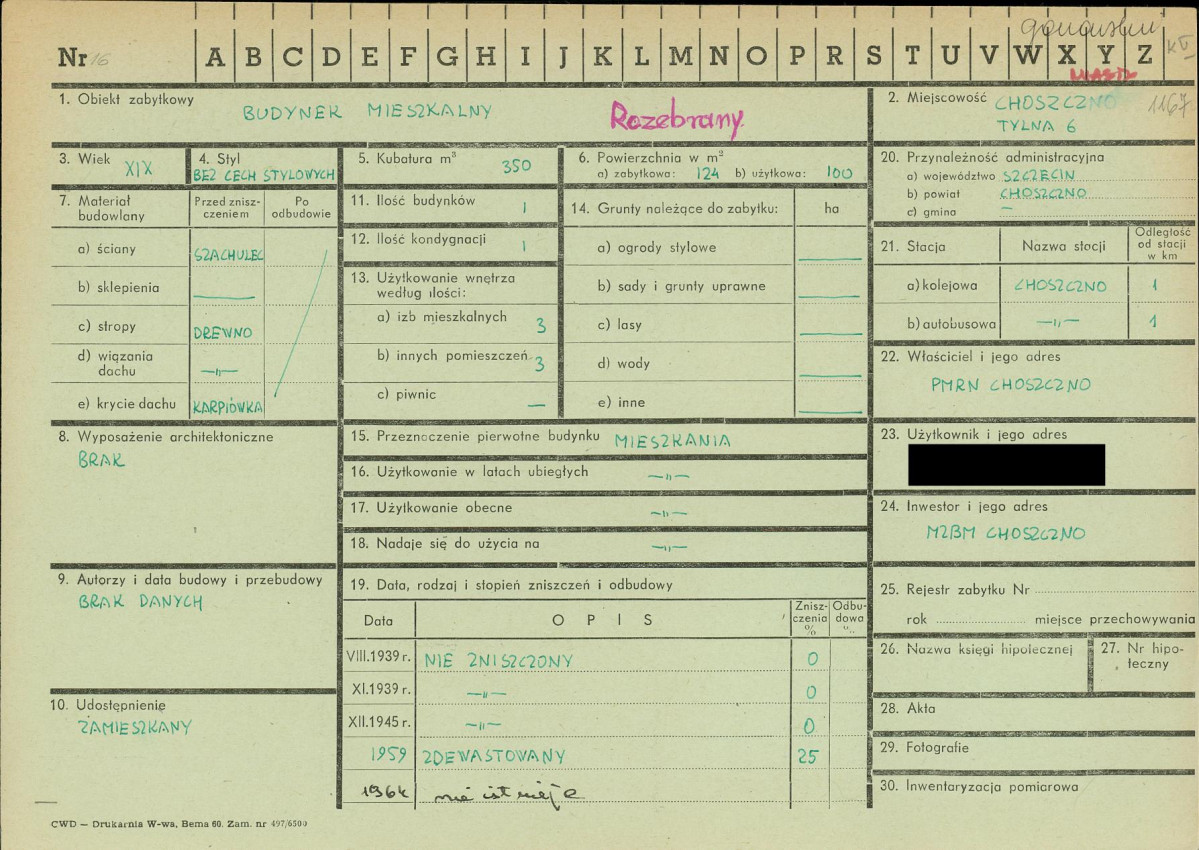 Nr 16 A B C D E F G H I J K L M N O P R S T U V W X Y Z
MIASTO
1. Obiekt zabytkowy
BUDYNEK MIESZKALNY
Rozebrany.
2. Miejscowość CHOSZCZNO 1167
TYLNA 6
3. Wiek
XIX
4. Styl
BEZ CECH STYLOWYCH
5. Kubatura m³
350
6. Powierzchnia w m²
a) zabytkowa: 124 b) użytkowa: 100
20. Przynależność administracyjna
a) województwo SZCZECIN
b) powiat CHOSZCZNO
c) gmina —
7. Materiał budowlany
Przed znisz-
czeniem
Po
odbudowie
a) ściany SZACHULEC
b) sklepienia —
c) stropy DREWNO
d) wiązania
dachu —„—
e) krycie dachu KARPIÓWKA
11. Ilość budynków 1
12. Ilość kondygnacji 1
13. Użytkowanie wnętrza
według ilości:
a) izb mieszkalnych 3
b) innych pomieszczeń 3
c) piwnic —
14. Grunty należące do zabytku: ha
a) ogrody stylowe —
b) sady i grunty uprawne —
c) lasy —
d) wody —
e) inne —
21. Stacja Nazwa stacji Odległość
od stacji
w km
a) kolejowa CHOSZCZNO 1
b) autobusowa —„— 1
22. Właściciel i jego adres
PMRN CHOSZCZNO
8. Wyposażenie architektoniczne
BRAK
15. Przeznaczenie pierwotne budynku MIESZKANIA
16. Użytkowanie w latach ubiegłych —„—
17. Użytkowanie obecne —„—
18. Nadaje się do użycia na —„—
23. Użytkownik i jego adres
24. Inwestor i jego adres
MZBM CHOSZCZNO
9. Autorzy i data budowy i przebudowy
BRAK DANYCH
10. Udostępnienie
ZAMIESZKANY
19. Data, rodzaj i stopień zniszczeń i odbudowy
Data O P I S Znisz-
czenia
%
Odbu-
dowa
%
VIII.1939 r. NIE ZNISZCZONY 0
XI.1939 r. —„— 0
XII.1945 r. —„— 0
1959 ZDEWASTOWANY 25
1964 nie istnieje
25. Rejestr zabytku Nr
rok miejsce przechowywania
26. Nazwa księgi hipotecznej
27. Nr hipo-
teczny
28. Akta
29. Fotografie
30. Inwentaryzacja pomiarowa
CWD — Drukarnia W-wa, Bema 60. Zam. nr 497/6500